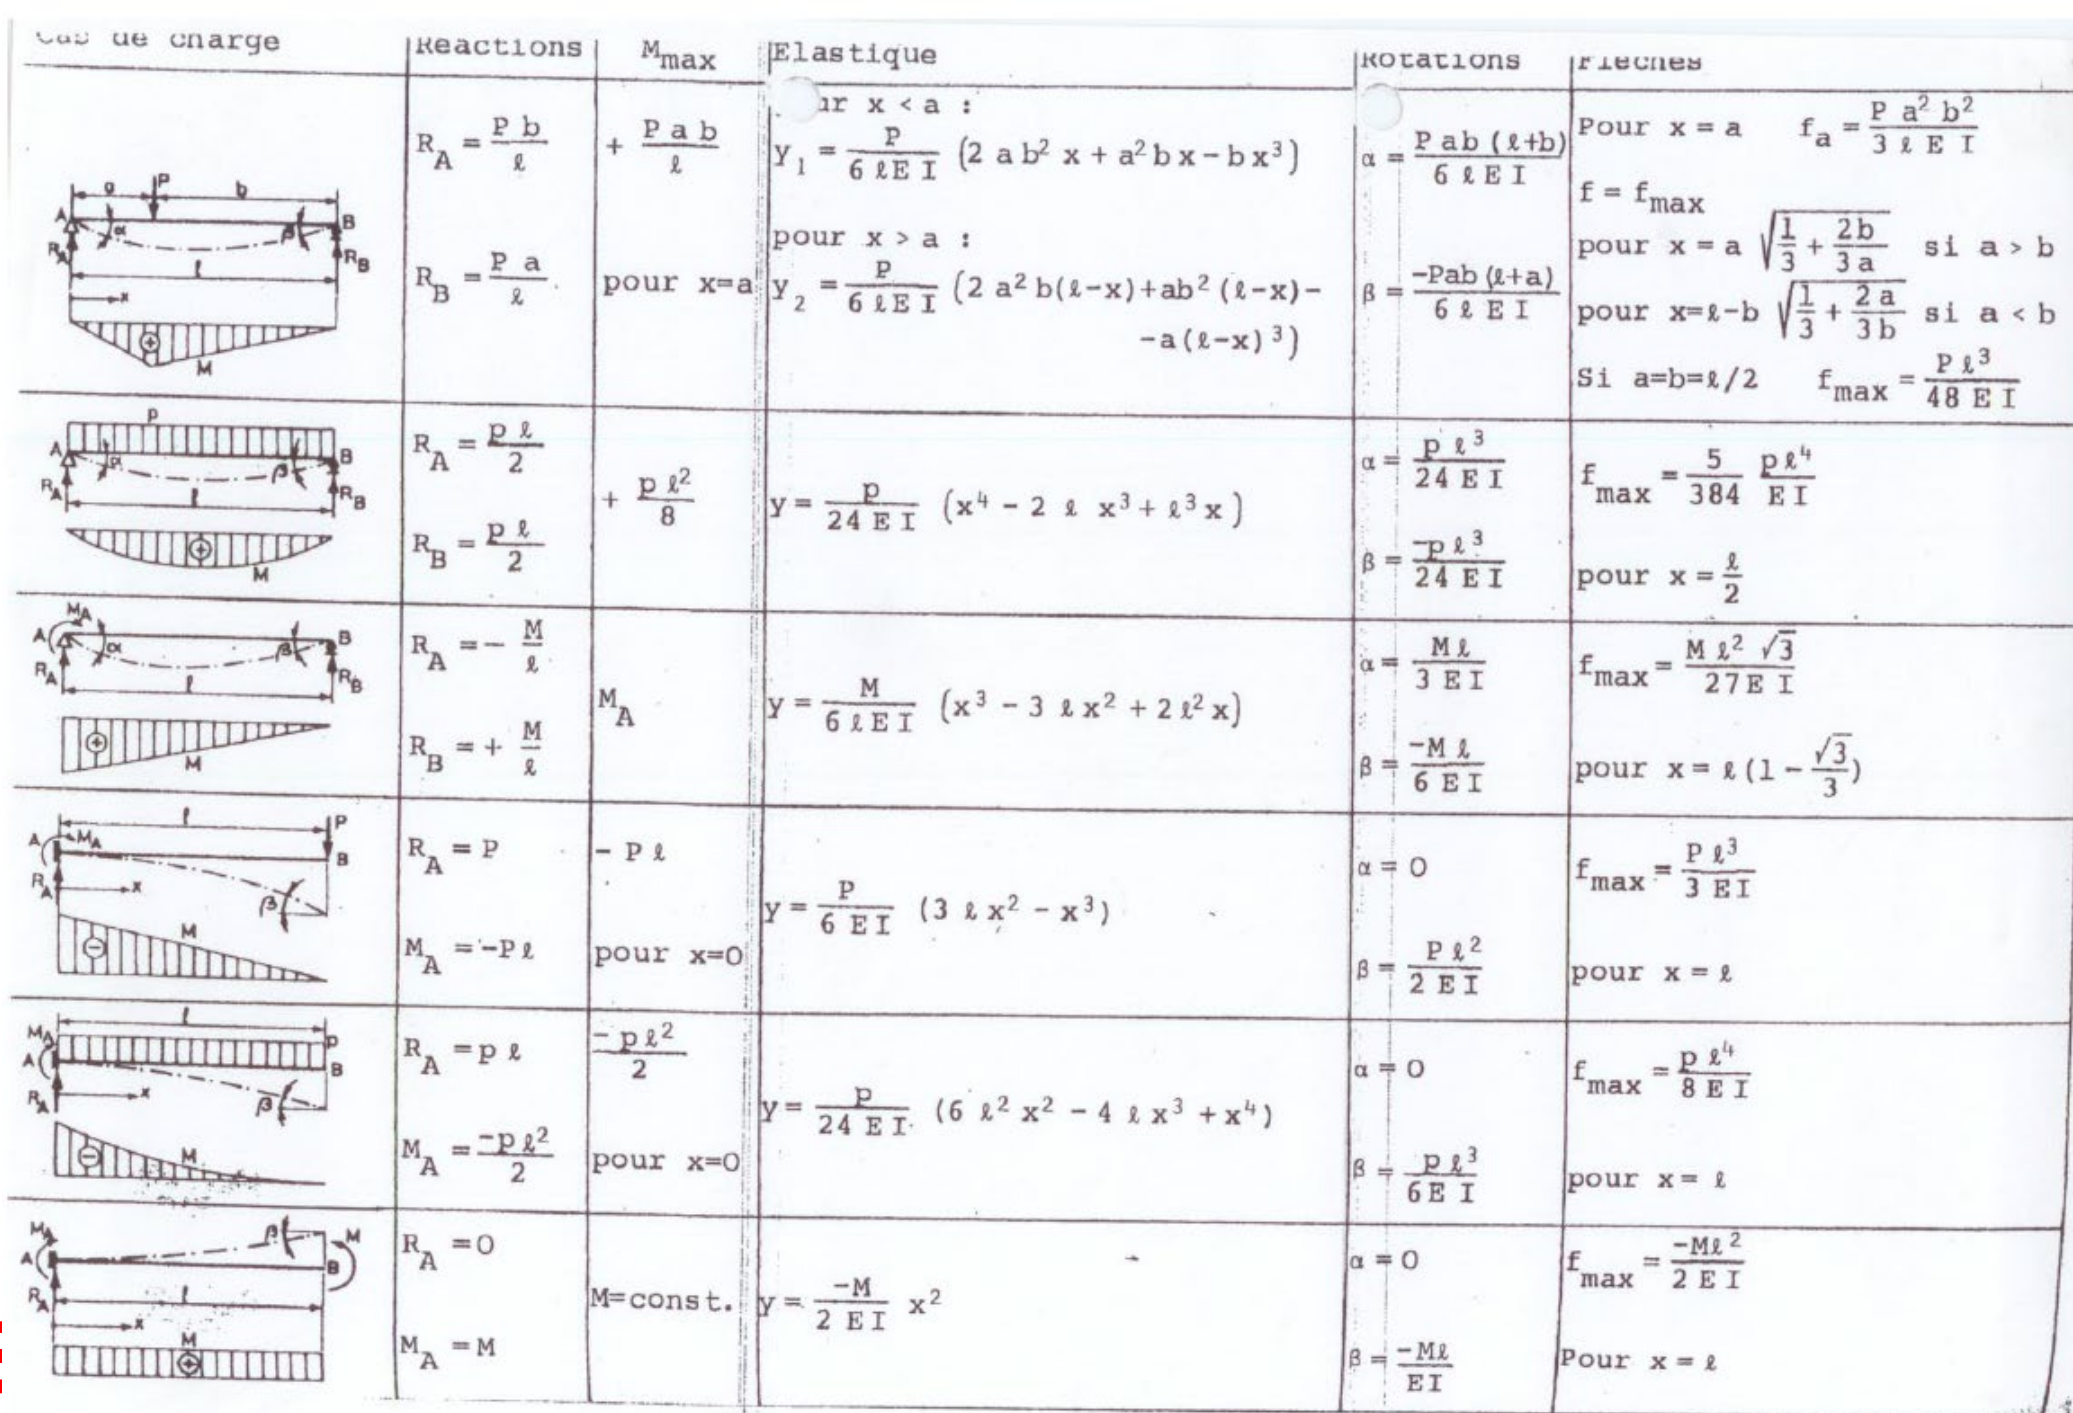 Cas de charge | Réactions | M_max | Elastique | Rotations | Flèches
a P b
A α β B
R_A ℓ R_B
x
⊕ M
R_A = P b / ℓ
R_B = P a / ℓ
+ P a b / ℓ
pour x=a
ur x < a :
y_1 = P / 6 ℓ E I (2 a b² x + a² b x − b x³)
pour x > a :
y_2 = P / 6 ℓ E I (2 a² b(ℓ−x)+ab² (ℓ−x)−
−a(ℓ−x)³)
α = P ab (ℓ+b) / 6 ℓ E I
β = −Pab (ℓ+a) / 6 ℓ E I
Pour x = a f_a = P a² b² / 3 ℓ E I
f = f_max
pour x = a √(1/3 + 2b/3a) si a > b
pour x=ℓ−b √(1/3 + 2a/3b) si a < b
Si a=b=ℓ/2 f_max = P ℓ³ / 48 E I
p
A α β B
R_A ℓ R_B
⊕ M
R_A = p ℓ / 2
R_B = p ℓ / 2
+ p ℓ² / 8
y = p / 24 E I (x⁴ − 2 ℓ x³ + ℓ³ x)
α = p ℓ³ / 24 E I
β = −p ℓ³ / 24 E I
f_max = 5 / 384 p ℓ⁴ / E I
pour x = ℓ / 2
M_A
A α β B
R_A ℓ R_B
⊕ M
R_A = − M / ℓ
R_B = + M / ℓ
M_A
y = M / 6 ℓ E I (x³ − 3 ℓ x² + 2 ℓ² x)
α = M ℓ / 3 E I
β = −M ℓ / 6 E I
f_max = M ℓ² √3 / 27 E I
pour x = ℓ (1 − √3 / 3)
ℓ P
A M_A B
R_A x β
M
⊖
R_A = P
M_A = −P ℓ
− P ℓ
pour x=0
y = P / 6 E I (3 ℓ x² − x³)
α = 0
β = P ℓ² / 2 E I
f_max = P ℓ³ / 3 E I
pour x = ℓ
ℓ
M_A p
A B
R_A x β
⊖ M
R_A = p ℓ
M_A = −p ℓ² / 2
− p ℓ² / 2
pour x=0
y = p / 24 E I (6 ℓ² x² − 4 ℓ x³ + x⁴)
α = 0
β = p ℓ³ / 6 E I
f_max = p ℓ⁴ / 8 E I
pour x = ℓ
M_A β M
A B
R_A ℓ
x
M
⊕
R_A = 0
M_A = M
M=const.
y = −M / 2 E I x²
α = 0
β = −Mℓ / EI
f_max = −Mℓ² / 2 E I
Pour x = ℓ